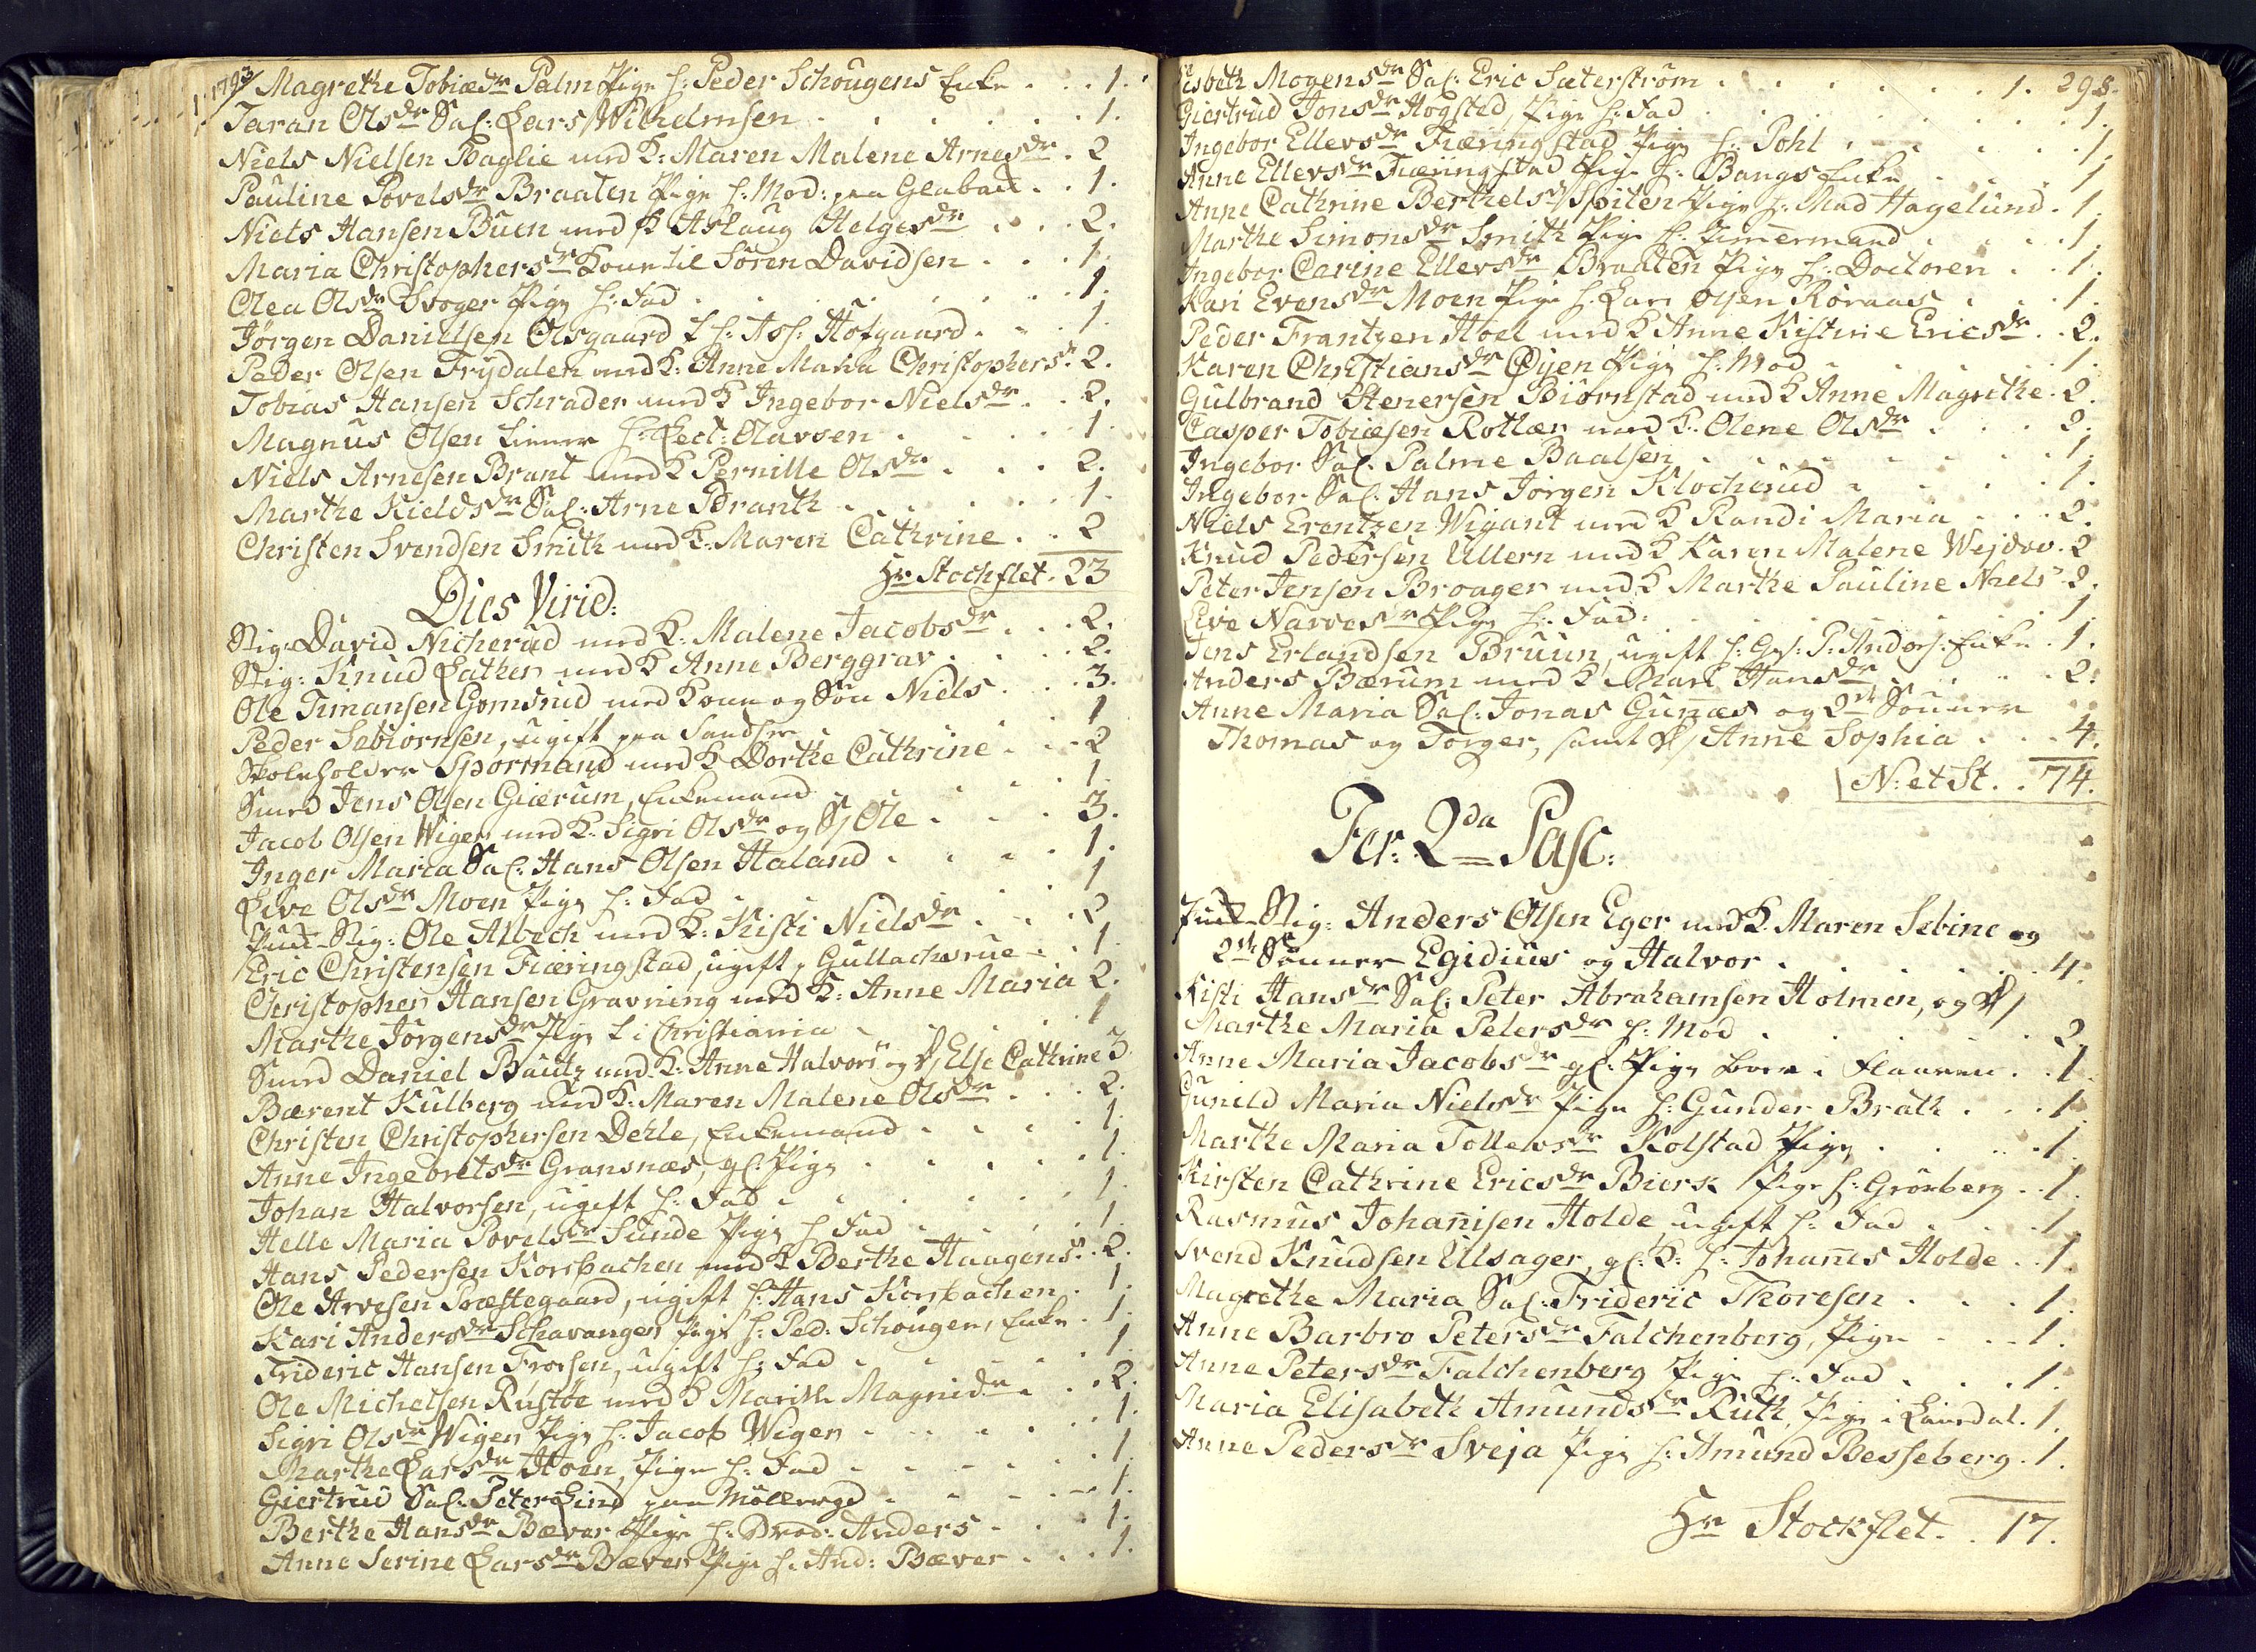 1793/ Magrethe Tobiæsdr Palm Pige h: Peder Schougens Enke . . . 1.
Taran Olsdr Sal: Lars Wilhelmsen . . . 1.
Niels Nielsen Baglie med K: Maren Malene Arnesdr . 2
Pauline Povelsdr Braaten Pige h: Mod: paa Glabak . . 1.
Niels Hansen Buen med K Aslaug Helgesdr . . . 2.
Maria Christophersdr Kone til Søren Davidsen . . . 1.
Olea Olsdr Svoger Pige h: Fad . . . 1.
Jørgen Danielsen Olsgaard t h: Ass: Hofgaard . . . 1
Peder Olsen Frydalen med K: Anne Maria Christophersdr . 2.
Tobias Hansen Schrader med K Ingebor Nielsdr . . 2.
Magnus Olsen tiener h: Lect: Olavsen . . . 1.
Niels Arnesen Brant med K Pernille Olsdr . . . 2.
Marthe Kieldsdr Sal: Arne Branth . . . 1.
Christen Svendsen Smith med K: Maren Cathrine . . 2
Hr Stochflet . 23
Dies Virid:
Stig: David Nicherud med K: Malene Jacobsdr . . . 2.
Stig: Knud Lather med K Anne Berggrav . . . 2.
Ole Timansen Gomsrud med Kone og Søn Niels . . . 3.
Peder Sebiørnsen, ugift paa Sandsv: 1
Skoleholder Spormand med K Dorthe Cathrine . . . 2
Smed Jens Olsen Giærum, Enkemand . . . 1.
Jacob Olsen Wigen med K: Sigri Olsdr og S/ Ole . . . 3.
Inger Maria Sal: Hans Olsen Haland . . . 1.
Live Olsdr Moen Pige h: Fad . . . 1
Stig: Ole Albech med K: Kisti Nielsdr . . . 2
Eric Christensen Fiæringstad, ugift, Gullachsrue . . 1.
Christopher Hansen Gravning med K: Anne Maria 2.
Marthe Jørgensdr Pige t i Christiania . . . 1
Smed Daniel Bautz med K: Anne Halvors: og D/ Else Cathrine 3
Bærent Kulberg med K: Maren Malene Olsdr . . . 2.
Christen Christophersen Dehle, Enkemand . . . 1.
Anne Ingebretsdr Gransnæs, gl: Pige . . . 1.
Johan Halvorsen, ugift h: Fad . . . 1.
Helle Maria Povelsdr Sunde Pige h Fad . . . 1.
Hans Pedersen Korsbachen med K Berthe Haagensdr . . 2.
Ole Arvesen Præstegaard, ugift h: Hans Korsbachen . 1.
Kari Andersdr Schavangen Pige h: Ped: Schougens Enke . 1.
Frideric Hansen Frosen, ugift h: Fad . . . 1
Ole Michelsen Rustøe med K Marithe Magnidr . . . 2.
Sigri Olsdr Wigen Pige h: Jacob Wigen . . . 1.
Marthe Larsdr Hoen, Pige h: Fad . . . 1.
Giertrud Sal: Peter Lind paa Møllergd . . . 1.
Berthe Hansdr Bæver Pige h: Brod: Anders . . . 1.
Anne Serine Larsdr Bæver Pige h: And: Bæver . . . 1.
Lisbeth Mogensdr Sal: Eric Sæterstrøm . . . 1. 298.
Giertrud Jonsdr Hogsted, Pige h: Fad . . . 1.
Ingebor Ellersdr Fiæringstad Pige h: Pohl . . . 1.
Anne Ellevsdr Fiæringstad Pige h: Bangs Enke . . . 1
Anne Cathrine Berthelsdr Spiten Pige h: Mad Hagelund . 1.
Marthe Simonsdr Smith Pige h: Timermand . . . 1.
Ingebor Carine Ellevsdr Braaten Pige h: Doctoren . . 1.
Kari Evensdr Moen Pige h: Lars Olsen Røraas . . . 1.
Peder Frantzen Hoel med K Anne Kistine Ericsdr . . 2.
Karen Christiansdr Øyen Pige h: Mod . . . 1.
Gulbrand Stenersen Biørnstad med K Anne Magrethe . 2.
Casper Tobiæsen Rotlær med K: Olene Olsdr . . . 2.
Ingebor Sal: Palme Baalsen . . . 1.
Ingebor Sal: Hans Jørgen Klocherud . . . 1.
Niels Erentzen Wigant med K Randi Maria . . . 2.
Knud Pedersen Ullern med K Karen Malene Wejdov . 2
Peter Jensen Broager med K Marthe Pauline Niels: . 2.
Live Narvesdr Pige h: Fad . . . 1.
Jens Erlandsen Bruun, ugift h: P: Anders: Enke . 1.
Anders Bærum med K Mari Hansdr . . . 2.
Anne Maria Sal: Jonas Gunæs og 2de Sønner
Thomas og Torger, samt D/ Anne Sophia . . . 4.
N: et St. . 74.
Fer: 2da Pasc:
Stig: Anders Olsen Eger med K: Maren Sebine og
2de Sønner Egidius og Halvor . . . 4.
Kisti Hansdr Sal: Peter Abrahamsen Holmen, og D/
Marthe Maria Petersdr h: Mod . . . 2.
Anne Maria Jacobsdr gl: Pige boer i Flaaren . . 1.
Gunild Maria Nielsdr Pige h: Gunder Brath . . . 1.
Marthe Maria Tollevsdr Kolstad Pige . . . 1.
Kirsten Cathrine Ericsdr Bierk Pige h: Grönberg . . 1.
Rasmus Johannisen Holde ugift h: Fad . . . 1.
Svend Knudsen Ulsager, gl: K: h: Johannes Holde . . 1.
Magrethe Maria Sal: Frideric Thoresen . . . 1.
Anne Barbro Petersdr Falchenberg, Pige . . . 1.
Anne Petersdr Falchenberg Pige h: Fad . . . 1.
Maria Elisabeth Amundsdr Ruth, Pige i Laurdal . 1.
Anne Pedersdr Sveja Pige h: Amund Besseberg . 1.
Hr Stockflet . . 17.